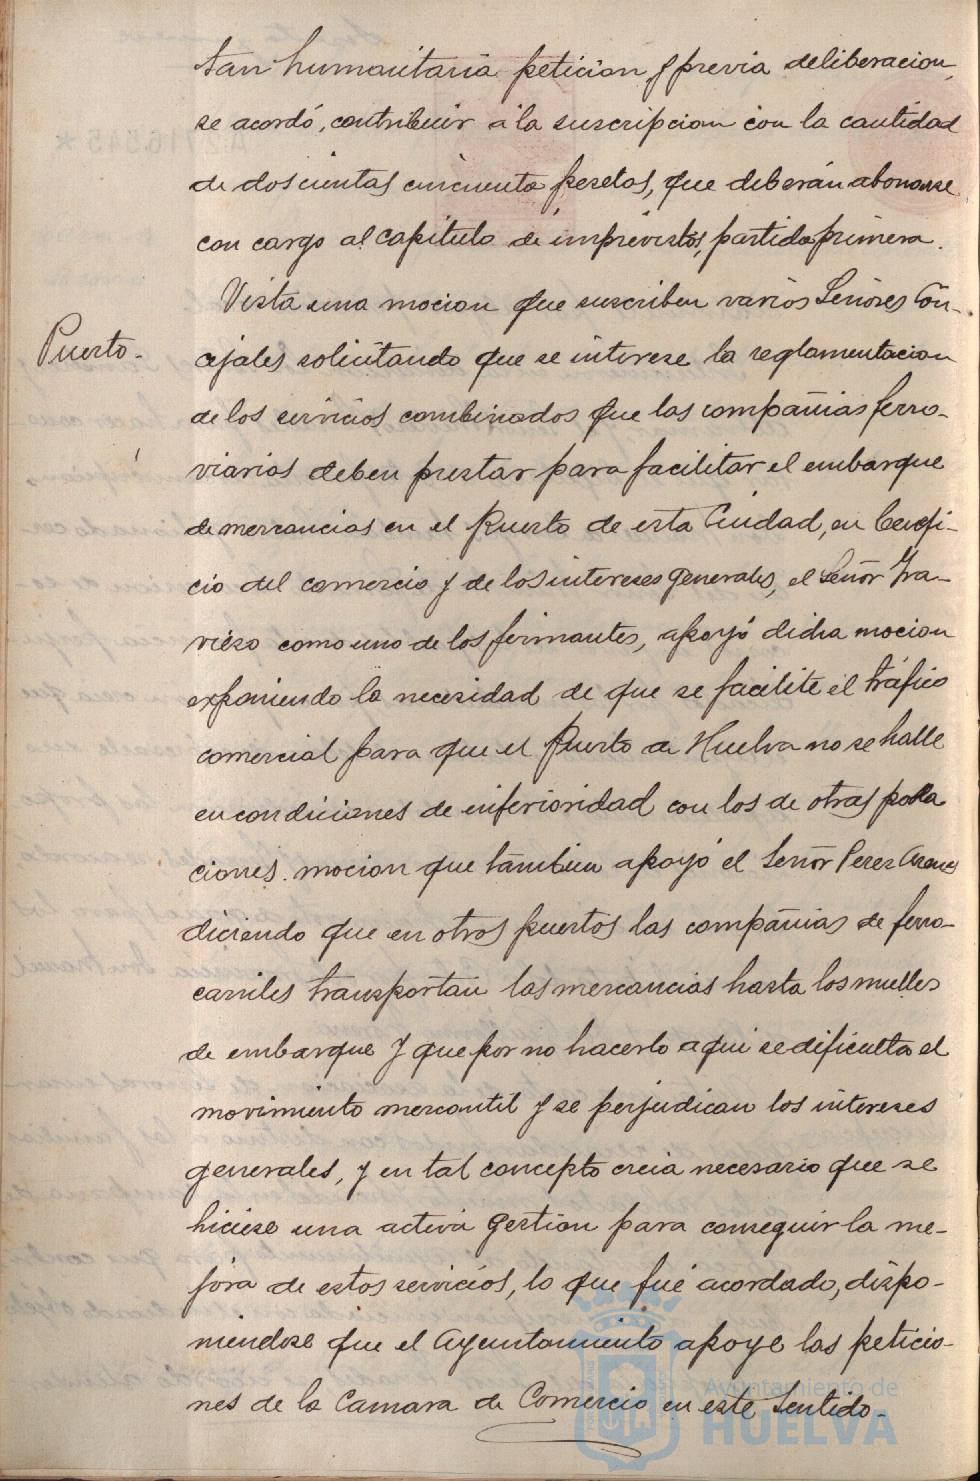 tan humanitaria peticion y previa deliberacion,
se acordó, contribuir á la suscripcion con la cantidad
de doscientas cincuenta pesetas, que deberán abonarse
con cargo al capítulo de imprevistos, partida primera.
Vista una mocion que suscriben varios Señores Con-
Puerto.
cejales solicitando que se interese la reglamentacion
de los servicios combinados que las compañias ferro-
viarias deben prestar para facilitar el embarque
de mercancias en el Puerto de esta Ciudad, en benefi-
cio del comercio y de los intereses generales, el Señor Tra-
vieso como uno de los firmantes, apoyó dicha mocion
exponiendo la necesidad de que se facilite el tráfico
comercial para que el Puerto de Huelva no se halle
en condiciones de inferioridad con los de otras pobla
ciones. mocion que tambien apoyó el Señor Perez
diciendo que en otros puertos las compañias de ferro-
carriles transportan las mercancias hasta los muelles
de embarque y que por no hacerlo aqui se dificulta el
movimiento mercantil y se perjudican los intereses
generales, y en tal concepto creia necesario que se
hiciese una activa gestion para conseguir la me-
jora de estos servicios, lo que fué acordado, dispo-
niendose que el Ayuntamiento apoye las peticio-
nes de la Camara de Comercio en este sentido.
Ayuntamiento de
HUELVA